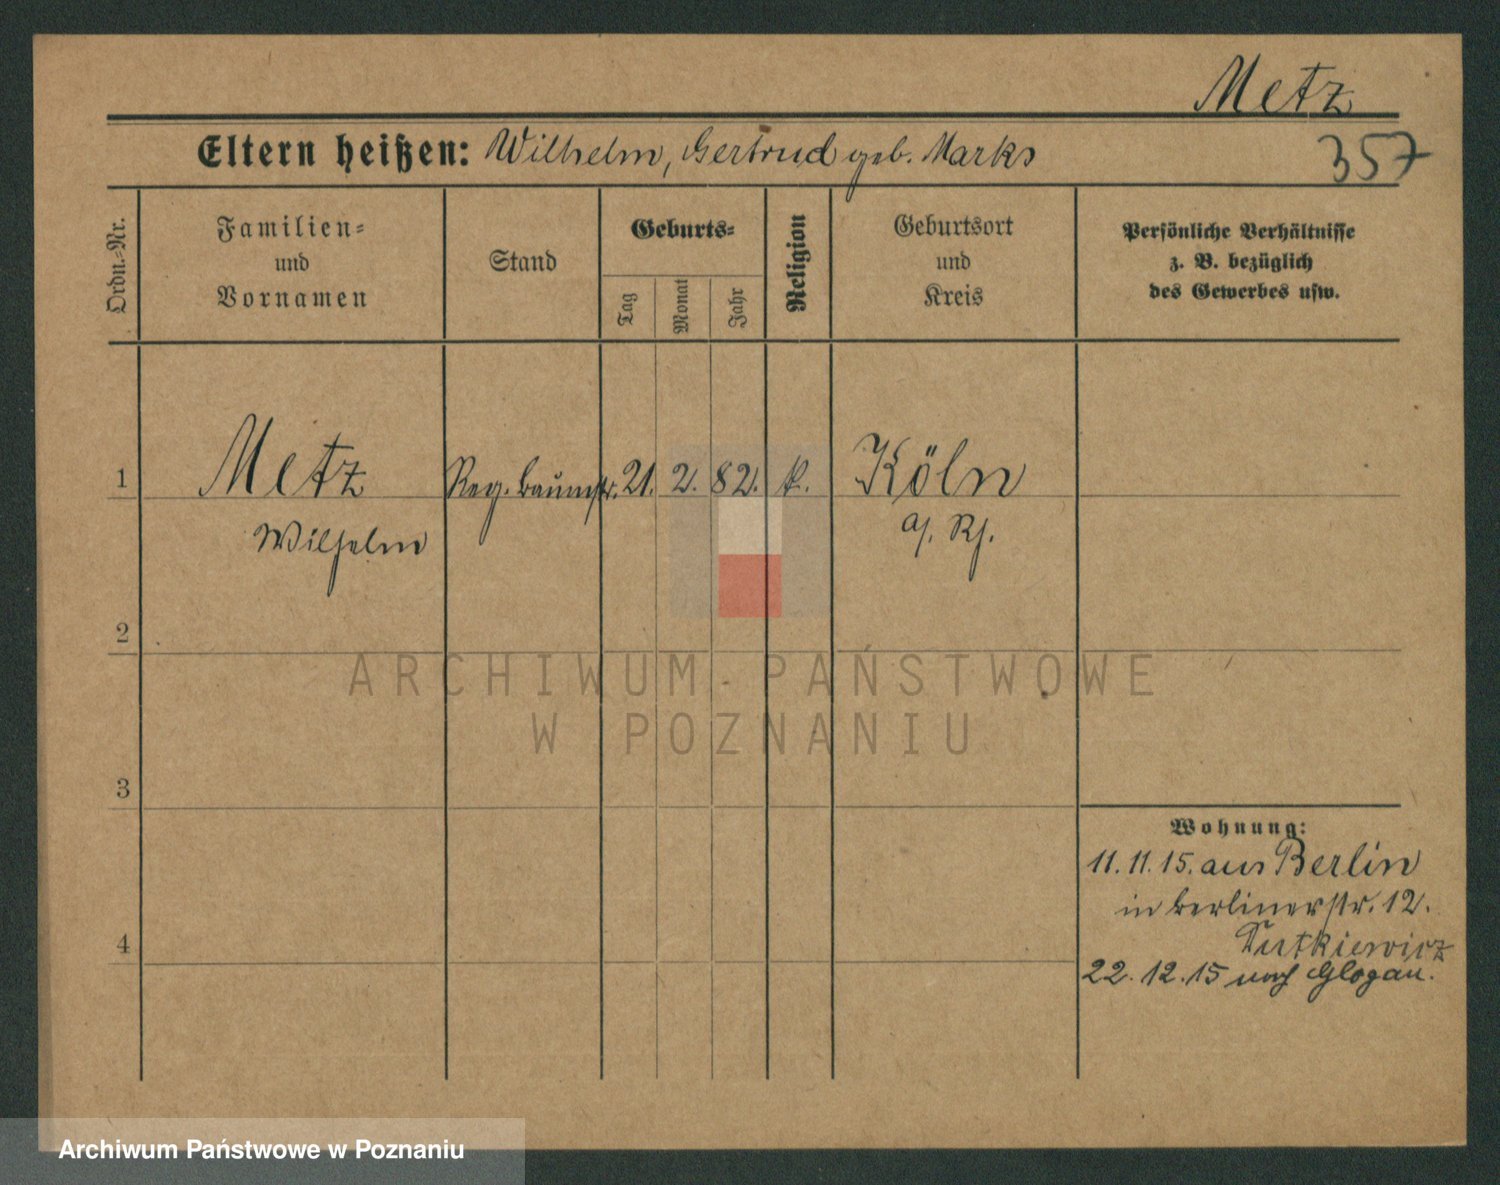 Metz
Eltern heißen: Wilhelm, Gertrud geb. Marks
357
Ordn.-Nr.
Familien-
und
Vornamen
Stand
Geburts-
Tag
Monat
Jahr
Religion
Geburtsort
und
Kreis
Persönliche Verhältnisse
z. B. bezüglich
des Gewerbes usw.
1 Metz Reg. Baumstr. 21. 2. 82. k. Köln
Wilhelm a/. Rh.
2
ARCHIWUM PAŃSTWOWE
W POZNANIU
3
Wohnung:
11. 11. 15. aus Berlin
in Berlinerstr. 12.
4
22. 12. 15 nach Glogau.
Archiwum Państwowe w Poznaniu